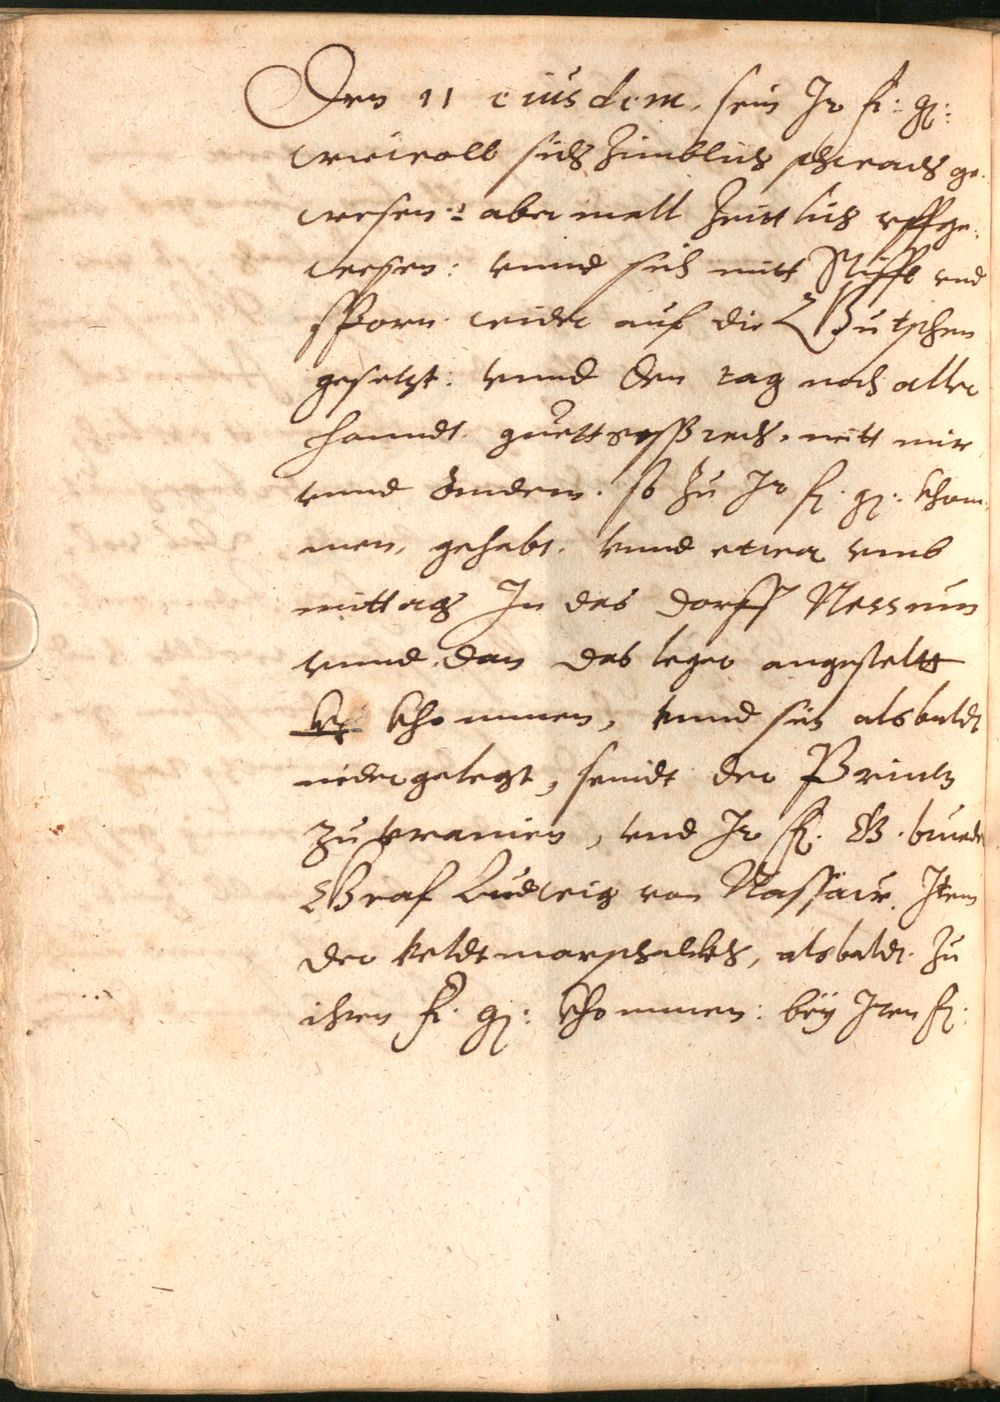 Den 11 eiusdem, sein Jr f: g:
wiewoll sich zimblich schwach ge-
wesen: abermall zeittlich uffge-
wesen: unnd sich mitt Stiffl und
sporn wider auf die Gutschen
gesetzt: unnd den tag noch aller
handt guett gesprech, mitt mir
unnd andern. so zu Jr f. g: khom-
men, gehabt. unnd etwa umb
mittag Jn das dorff Nessum
unnd dan das leger angestellt
khommen, unnd sich alsbaldt
nidergelegt, seindt der Printz
zu Uranien, und Jr f. G. bruder
Graf Ludwig von Nassaw. Item
der veldtmarschalckh, alsbaldt zu
ihren f. g: khommen: bey Jren f: